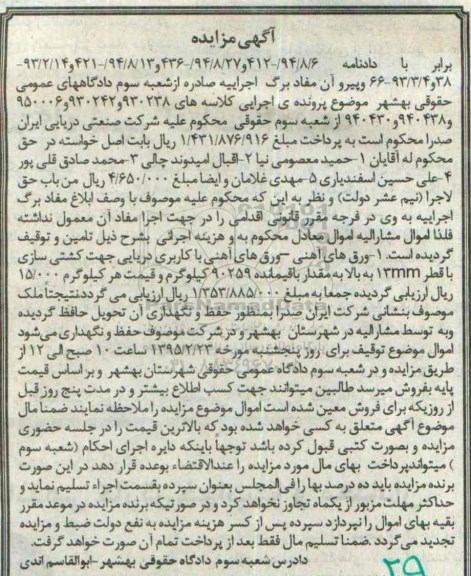 آگهی مزایده
برابر با دادنامه ۹۴/۸/۶-۴۱۲و۹۴/۸/۲۷-۴۳۶و۹۴/۸/۱۳-۴۲۱و۹۳/۲/۱۴-
۳۸و۹۳/۳/۴-۶۶ وپیرو آن مفاد برگ اجراییه صادره ازشعبه سوم دادگاههای عمومی
حقوقی بهشهر موضوع پرونده ی اجرایی کلاسه های ۹۳۰۲۳۸و۹۳۰۲۴۲و۹۵۰۰۰۶
و۹۴۰۴۳۸و۹۴۰۴۳۰ از شعبه سوم حقوقی محکوم علیه شرکت صنعتی دریایی ایران
صدرا محکوم است به پرداخت مبلغ ۱/۴۳۱/۸۷۶/۹۱۶ ریال بابت اصل خواسته در حق
محکوم له آقایان ۱-حمید معصومی نیا ۲-اقبال امیدوند چالی ۳-محمد صادق قلی پور
۴-علی حسین اسفندیاری ۵-مهدی غلامان و ایضا مبلغ ۴/۶۵۰/۰۰۰ ریال من باب حق
لاجرا (نیم عشر دولت) و نظر به این که محکوم علیه موصوف با وصف ابلاغ مفاد برگ
اجراییه به وی در فرجه مقرر قانونی اقدامی را در جهت اجرا مفاد آن معمول نداشته
فلذا اموال مشارالیه اموال معادل محکوم به و هزینه اجرائی بشرح ذیل تامین و توقیف
گردیده است. ۱-ورق های آهنی -ورق های آهنی با کاربری دریایی جهت کشتی سازی
با قطر ۱۳mm به بالا به مقدار باقیمانده ۹۰۲۵۹ کیلوگرم و قیمت هر کیلوگرم ۱۵/۰۰۰
ریال ارزیابی گردیده جمعا به مبلغ ۱/۳۵۳/۸۸۵/۰۰۰ ریال ارزیابی می گرددنتیجتا ملک
موصوف بنشانی شرکت ایران صدرا بمنظور حفظ و نگهداری آن تحویل حافظ گردیده
وبه توسط مشارالیه در شهرستان بهشهر و در شرکت موصوف حفظ و نگهداری می شود
اموال موضوع توقیف برای روز پنجشنبه مورخه ۱۳۹۵/۲/۲۳ ساعت ۱۰ صبح الی ۱۲ از
طریق مزایده و در شعبه سوم دادگاه عمومی حقوقی شهرستان بهشهر و بر اساس قیمت
پایه بفروش میرسد طالبین میتوانند جهت کسب اطلاع بیشتر و در مدت پنج روز قبل
از روزیکه برای فروش معین شده است اموال موضوع مزایده را ملاحظه نمایند ضمنا مال
موضوع آگهی متعلق به کسی خواهد شده بود که بالاترین قیمت را در جلسه حضوری
مزایده و بصورت کتبی قبول کرده باشد توجها باینکه دایره اجرای احکام (شعبه سوم
) میتواندپرداخت بهای مال مورد مزایده را عندالاقتضاء بوعده قرار دهد در این صورت
برنده مزایده باید ده درصد بها را فی المجلس بعنوان سپرده بقسمت اجراء تسلیم نماید و
حداکثر مهلت مزبور از یکماه تجاوز نخواهد کرد و در صورتیکه برنده مزایده در موعد مقرر
بقیه بهای اموال را نپردازد سپرده پس از کسر هزینه مزایده به نفع دولت ضبط و مزایده
تجدید می گردد .ضمنا تسلیم مال فقط بعد از پرداخت تمام آن صورت خواهد گرفت.
دادرس شعبه سوم دادگاه حقوقی بهشهر -ابوالقاسم اندی
۲۹